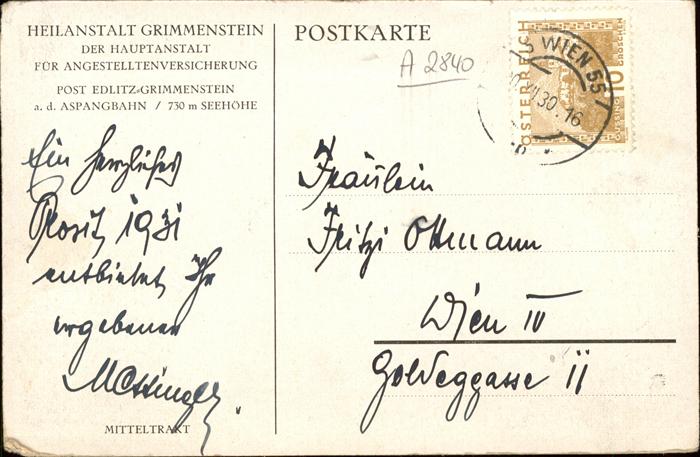 HEILANSTALT GRIMMENSTEIN
DER HAUPTANSTALT
FÜR ANGESTELLTENVERSICHERUNG
POST EDLITZ-GRIMMENSTEIN
a. d. ASPANGBAHN / 730 m SEEHÖHE
POSTKARTE
A 2840
WIEN 55
30.16
ÖSTERREICH
10
GROSCHEN
GÜSSING
Ein herzliches
Prosit 1931
entbietet Ihr
ergebener
MITTELTRAKT
Fräulein
Fritzi Ottmann
Wien IV
Goldeggasse 11